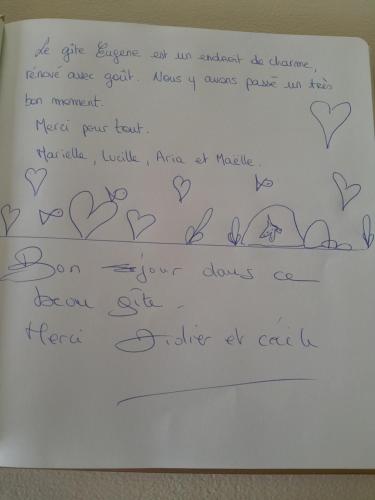 Le gîte Eugene est un endroit de charme,
rénové avec goût. Nous y avons passé un très
bon moment.
Merci pour tout.
Marielle, Lucille, Aria et Maëlle.
Bon séjour dans ce
beau gîte.
Merci Didier et cécile